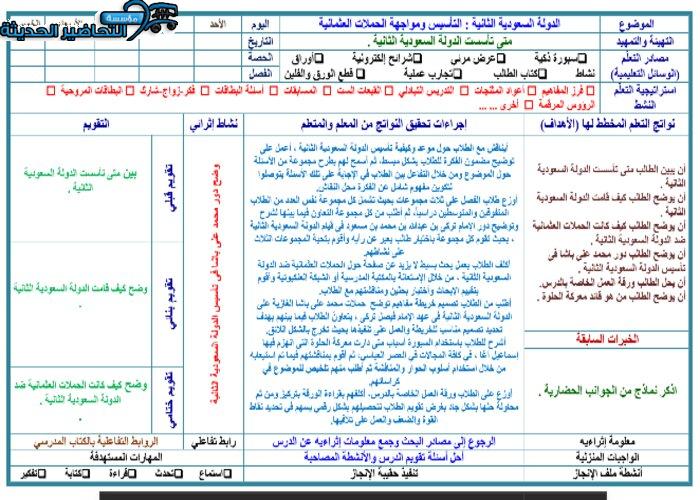 مؤسسة
التحاضير الحديثة
الموضوع
الدولة السعودية الثانية : التأسيس ومواجهة الحملات العثمانية
اليوم
الأحد
التهيئة والتمهيد
متى تأسست الدولة السعودية الثانية .
التاريخ
مصادر التعلم
(الوسائل التعليمية)
سبورة ذكية
عرض مرئي
شرائح إلكترونية
أوراق
نشاط
كتاب الطالب
تجارب عملية
قطع الورق والفلين
الحصة
الفصل
استراتيجية التعلم
النشط
فرز المفاهيم
أعواد المثلجات
التدريس التبادلي
القبعات الست
المسابقات
أسئلة البطاقات
فكر-زواج-شارك
البطاقات المروحية
الرؤوس المرقمة
أخرى ... ...
نواتج التعلم المخطط لها (الأهداف)
إجراءات تحقيق النواتج من المعلم والمتعلم
نشاط إثرائي
التقويم
أن يبين الطالب متى تأسست الدولة السعودية
الثانية .
أن يوضح الطالب كيف قامت الدولة السعودية
الثانية .
أن يوضح الطالب كيف كانت الحملات العثمانية
ضد الدولة السعودية الثانية .
أن يوضح الطالب دور محمد على باشا فى
تأسيس الدولة السعودية الثانية .
أن يحل الطالب ورقة العمل الخاصة بالدرس.
أن يوضح الطالب من هو قائد معركة الحلوة .
الخبرات السابقة
اذكر نماذج من الجوانب الحضارية .
أناقش مع الطلاب حول موعد وكيفية تأسيس الدولة السعودية الثانية ، أعمل على
توضيح مضمون الفكرة للطلاب بشكل مبسط، ثم أسمح لهم بطرح مجموعة من الأسئلة
حول الموضوع ومن خلال التفاعل بين الطلاب في الإجابة على تلك الأسئلة يتوصلوا
لتكوين مفهوم شامل عن الفكرة محل النقاش.
أوزع طلاب الفصل على ثلاث مجموعات بحيث تشمل كل مجموعة نفس العدد من الطلاب
المتفوقين والمتوسطين دراسياً، ثم أطلب من كل مجموعة التعاون فيما بينها لشرح
وتوضيح دور الامام تركى بن عبدالله بن محمد بن مسعود فى قيام الدولة السعودية الثانية
، بحيث تقوم كل مجموعة باختيار طالب يعبر عن رأيه وأقوم بتحية المجموعات الثلاث
على نشاطهم.
أكلف الطلاب بعمل بحث بسيط لا يزيد عن صفحة حول الحملات العثمانية ضد الدولة
السعودية الثانية ، من خلال الإستعانة بالمكتبة المدرسية أو الشبكة العنكبوتية وأقوم
بتقييم الابحاث واختيار بحثين ومناقشتهم مع الطلاب.
أطلب من الطلاب تصميم خريطة مفاهيم توضح حملات محمد على باشا الغازية على
الدولة السعودية الثانية فى عهد الإمام فيصل تركى ، يتعاون الطلاب فيما بينهم بهدف
تحديد تصميم مناسب للخريطة والعمل على تنفيذها بحيث تخرج بالشكل اللائق.
أشرح للطلاب باستخدام السبورة أسباب متى دارت معركة الحلوة التى انهزم فيها
اسماعيل آغا ، فى كافة المجالات فى العصر العباسى، ثم أقوم بمناقشتهم فيما تم استيعابه
من خلال استخدام أسلوب الحوار والمناقشة ثم أطلب منهم تلخيص للموضوع في
كراساتهم.
أوزع على الطلاب ورقة العمل الخاصة بالدرس، أكلفهم بقراءة الورقة بتركيز ومن ثم
محاولة حلها بشكل جاد بغرض تقويم الطلاب لتحصيلهم بشكل رقمي يسهم في تحديد نقاط
القوة والضعف والعمل على تلافيها.
وضح دور محمد على باشا فى تأسيس الدولة السعودية الثانية
تقويم قبلي
بين متى تأسست الدولة السعودية
الثانية .
تقويم بنائي
وضح كيف قامت الدولة السعودية الثانية
.
تقويم ختامي
وضح كيف كانت الحملات العثمانية ضد
الدولة السعودية الثانية .
معلومة إثرائية
الرجوع إلى مصادر البحث وجمع معلومات إثرائية عن الدرس
رابط تفاعلي
الروابط التفاعلية بالكتاب المدرسي
الواجبات المنزلية
أحل أسئلة تقويم الدرس والأنشطة المصاحبة
المهارات المستهدفة
أنشطة ملف الإنجاز
تنفيذ حقيبة الإنجاز
استماع
تحدث
قراءة
كتابة
تفكير